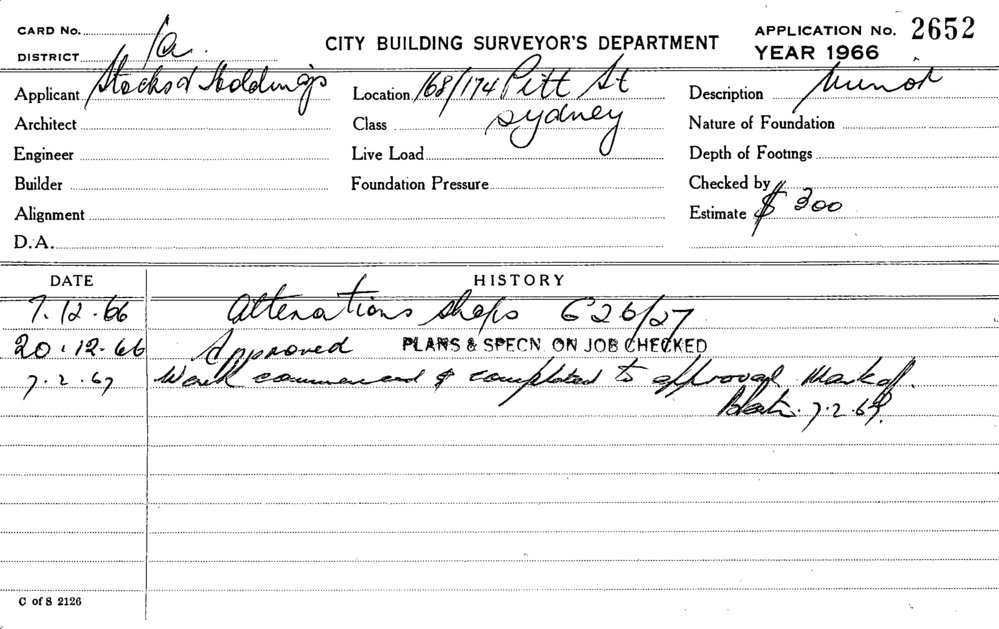 CARD No.
CITY BUILDING SURVEYOR'S DEPARTMENT
APPLICATION No. 2652
DISTRICT 1a.
YEAR 1966
Applicant Stocks & Holdings
Location 168/174 Pitt St
Description Minor
Architect
Class Sydney
Nature of Foundation
Engineer
Live Load
Depth of Footings
Builder
Foundation Pressure
Checked by
Alignment
Estimate $ 300
D.A.
DATE HISTORY
7.12.66 Alterations shops G26/27
20.12.66 Approved PLANS & SPECN. ON JOB CHECKED
7.2.67 Work commenced & completed to approval Mark off.
7.2.67.
C of S 2126